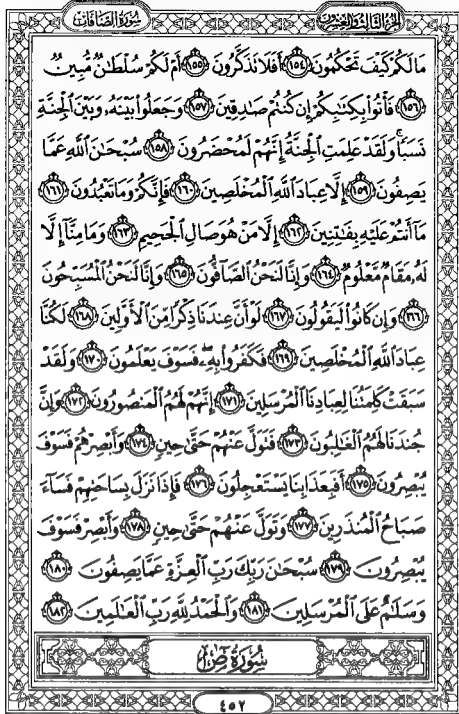 سُورَةُ الصَّافَّاتِ
الجزء الثالث والعشرون
مَا لَكُمْ كَيْفَ تَحْكُمُونَ ١٥٤ أَفَلَا تَذَكَّرُونَ ١٥٥ أَمْ لَكُمْ سُلْطَانٌ مُّبِينٌ
١٥٦ فَأْتُوا بِكِتَابِكُمْ إِن كُنتُمْ صَادِقِينَ ١٥٧ وَجَعَلُوا بَيْنَهُۥ وَبَيْنَ الْجِنَّةِ
نَسَبًا ۚ وَلَقَدْ عَلِمَتِ الْجِنَّةُ إِنَّهُمْ لَمُحْضَرُونَ ١٥٨ سُبْحَانَ اللَّهِ عَمَّا
يَصِفُونَ ١٥٩ إِلَّا عِبَادَ اللَّهِ الْمُخْلَصِينَ ١٦٠ فَإِنَّكُمْ وَمَا تَعْبُدُونَ ١٦١
مَا أَنتُمْ عَلَيْهِ بِفَاتِنِينَ ١٦٢ إِلَّا مَنْ هُوَ صَالِ الْجَحِيمِ ١٦٣ وَمَا مِنَّا إِلَّا
لَهُۥ مَقَامٌ مَّعْلُومٌ ١٦٤ وَإِنَّا لَنَحْنُ الصَّافُّونَ ١٦٥ وَإِنَّا لَنَحْنُ الْمُسَبِّحُونَ
١٦٦ وَإِن كَانُوا لَيَقُولُونَ ١٦٧ لَوْ أَنَّ عِندَنَا ذِكْرًا مِّنَ الْأَوَّلِينَ ١٦٨ لَكُنَّا
عِبَادَ اللَّهِ الْمُخْلَصِينَ ١٦٩ فَكَفَرُوا بِهِۦ فَسَوْفَ يَعْلَمُونَ ١٧٠ وَلَقَدْ
سَبَقَتْ كَلِمَتُنَا لِعِبَادِنَا الْمُرْسَلِينَ ١٧١ إِنَّهُمْ لَهُمُ الْمَنصُورُونَ ١٧٢ وَإِنَّ
جُندَنَا لَهُمُ الْغَالِبُونَ ١٧٣ فَتَوَلَّ عَنْهُمْ حَتَّىٰ حِينٍ ١٧٤ وَأَبْصِرْهُمْ فَسَوْفَ
يُبْصِرُونَ ١٧٥ أَفَبِعَذَابِنَا يَسْتَعْجِلُونَ ١٧٦ فَإِذَا نَزَلَ بِسَاحَتِهِمْ فَسَاءَ
صَبَاحُ الْمُنذَرِينَ ١٧٧ وَتَوَلَّ عَنْهُمْ حَتَّىٰ حِينٍ ١٧٨ وَأَبْصِرْ فَسَوْفَ
يُبْصِرُونَ ١٧٩ سُبْحَانَ رَبِّكَ رَبِّ الْعِزَّةِ عَمَّا يَصِفُونَ ١٨٠
وَسَلَامٌ عَلَى الْمُرْسَلِينَ ١٨١ وَالْحَمْدُ لِلَّهِ رَبِّ الْعَالَمِينَ ١٨٢
سُورَةُ صٓ
٤٥٢